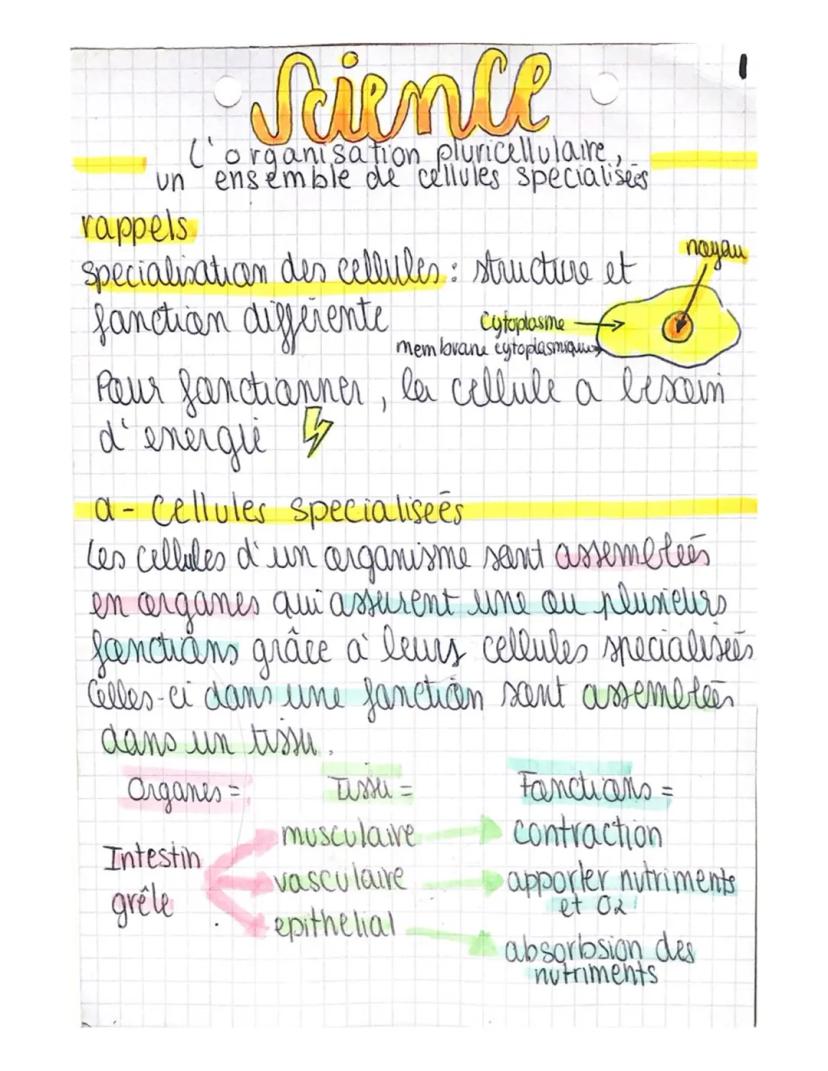 1
Science
L'organisation pluricellulaire,
un ensemble de cellules specialisées
rappels
specialisation des cellules : structure et
fonction différente
noyau
Cytoplasme
membrane cytoplasmique
Pour fonctionner, la cellule a besoin
d'energie
a - Cellules specialiseés
Les cellules d'un organisme sont assembleés
en organes qui assurent une ou plusieurs
fonctions grâce à leurs cellules specialiseés
Celles-ci dans une fonction sont assembleés
dans un tissu.
Organes =
Tissu =
Fonctions =
Intestin
grêle
musculaire
contraction
vasculaire
apporter nutriments
et O2
epithelial
absorbsion des
nutriments